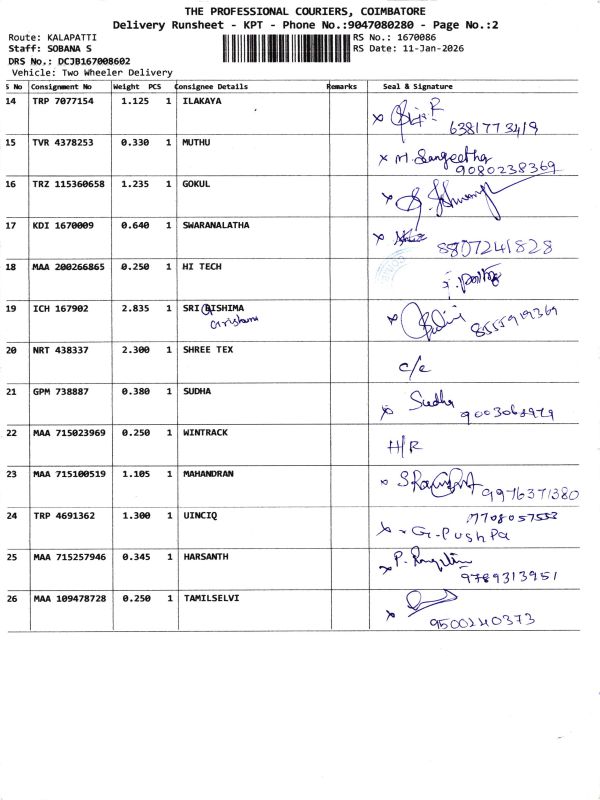 THE PROFESSIONAL COURIERS, COIMBATORE
Delivery Runsheet - KPT - Phone No.:9047080280 - Page No.:2
Route: KALAPATTI RS No.: 1670086
Staff: SOBANA S RS Date: 11-Jan-2026
DRS No.: DCJB167008602
Vehicle: Two Wheeler Delivery
S No Consignment No Weight PCS Consignee Details Remarks Seal & Signature
14 TRP 7077154 1.125 1 ILAKAYA
6381773419
15 TVR 4378253 0.330 1 MUTHU
x M. Sangeetha
9080238369
16 TRZ 115360658 1.235 1 GOKUL
x
17 KDI 1670009 0.640 1 SWARANALATHA
x 8807241828
18 MAA 200266865 0.250 1 HI TECH
19 ICH 167902 2.835 1 SRI GISHIMA
x 8555919369
20 NRT 438337 2.300 1 SHREE TEX
c/c
21 GPM 738887 0.380 1 SUDHA
x Sudha
22 MAA 715023969 0.250 1 WINTRACK
H/R
23 MAA 715100519 1.105 1 MAHANDRAN
x 9976371380
24 TRP 4691362 1.300 1 UINCIQ
7708057553
x - G. Pushpa
25 MAA 715257946 0.345 1 HARSANTH
x P.
9789313951
26 MAA 109478728 0.250 1 TAMILSELVI
x
9500240373